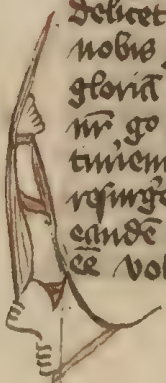 delicet
nobis
gloria
nr̄ go
timem
resurge
eandē
eē vol